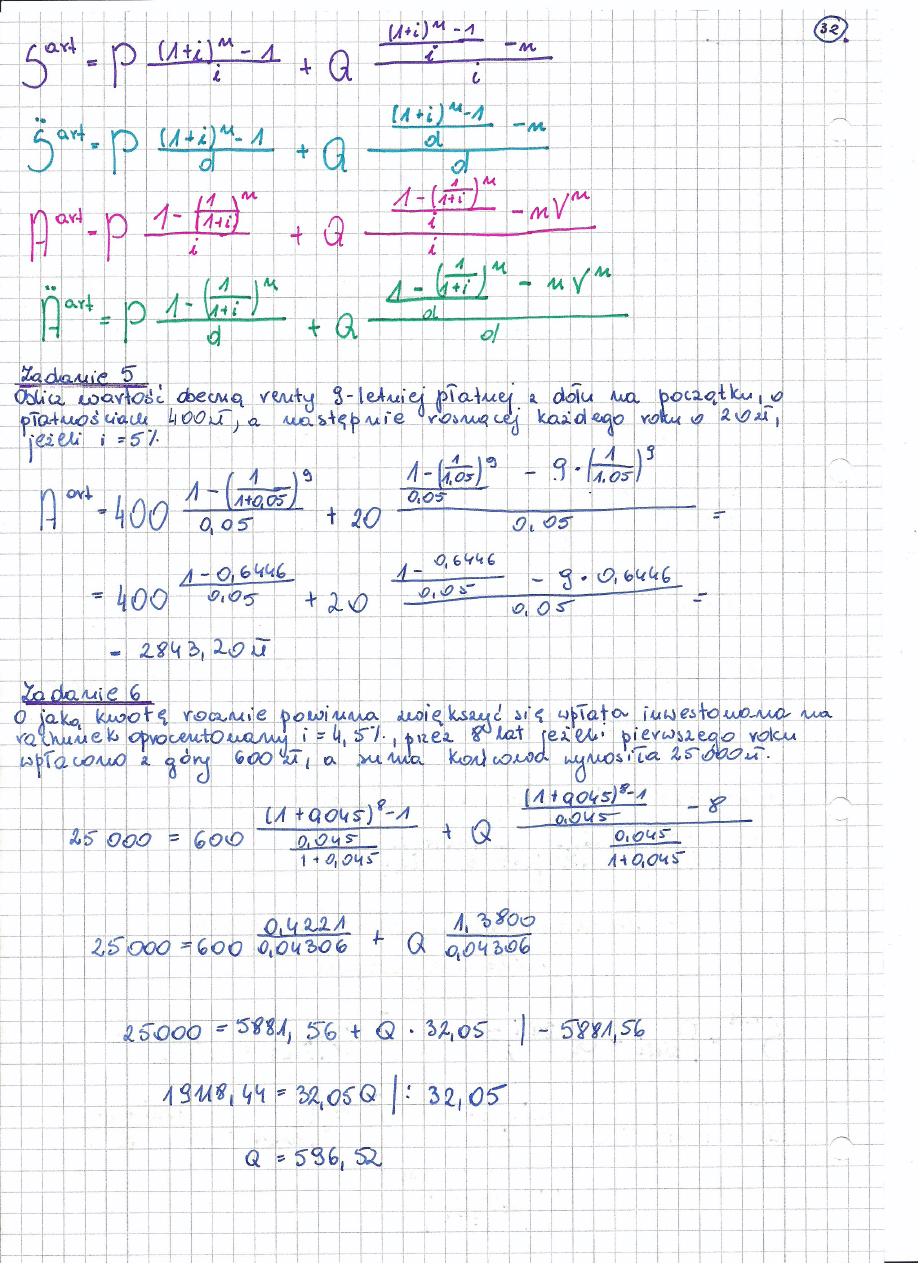 32.
S^art = P ((1+i)^n - 1)/i + Q (((1+i)^n - 1)/i - n)/i
S̈^art = P ((1+i)^n - 1)/d + Q (((1+i)^n - 1)/d - n)/d
A^art = P (1 - (1/(1+i))^n)/i + Q ((1 - (1/(1+i))^n)/i - nV^n)/i
Ä^art = P (1 - (1/(1+i))^n)/d + Q ((1 - (1/(1+i))^n)/d - nV^n)/d
Zadanie 5
Oblicz wartość obecną renty 9-letniej płatnej z dołu na początku, o
płatnościach 400 zł, a następnie rosnącej każdego roku o 20 zł,
jeżeli i = 5%.
A^art = 400 (1 - (1/(1+0,05))^9)/0,05 + 20 ((1 - (1/1.05)^9)/0,05 - 9 · (1/1.05)^9)/0,05 =
= 400 (1 - 0,6446)/0,05 + 20 ((1 - 0,6446)/0,05 - 9 · 0,6446)/0,05 =
= 2843,20 zł
Zadanie 6
O jaką kwotę rocznie powinna zwiększyć się wpłata inwestowana na
rachunek oprocentowany i = 4,5%, przez 8 lat jeżeli pierwszego roku
wpłacono z góry 600 zł, a suma końcowa wynosiła 25 000 zł.
25 000 = 600 ((1+0,045)^8 - 1)/(0,045/(1+0,045)) + Q (((1+0,045)^8 - 1)/0,045 - 8)/(0,045/(1+0,045))
25 000 = 600 0,4221/0,04306 + Q 1,3800/0,04306
25000 = 5881,56 + Q · 32,05 |- 5881,56
19118,44 = 32,05Q |: 32,05
Q = 596,52